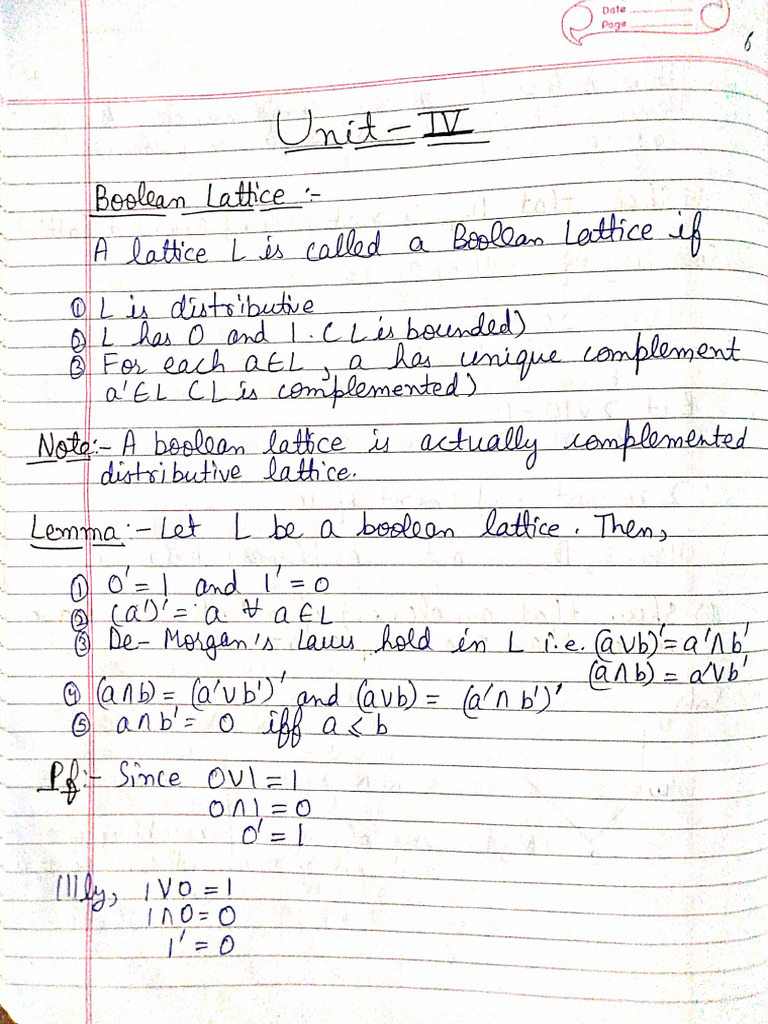 Date
Page
6
Unit - IV
Boolean Lattice :-
A lattice L is called a Boolean Lattice if
① L is distributive
② L has 0 and 1. (L is bounded)
③ For each a∈L, a has unique complement
a'∈L (L is complemented)
Note:- A boolean lattice is actually complemented
distributive lattice.
Lemma:- Let L be a boolean lattice. Then,
① 0' = 1 and 1' = 0
② (a')' = a ∀ a∈L
③ De-Morgan's Laws hold in L i.e. (a∨b)' = a'∧b'
(a∧b) = a'∨b'
④ (a∧b) = (a'∨b')' and (a∨b) = (a'∧b')'
⑤ a∧b' = 0 iff a ≤ b
Pf:- Since 0∨1 = 1
0∧1 = 0
0' = 1
|||ly, 1∨0 = 1
1∧0 = 0
1' = 0